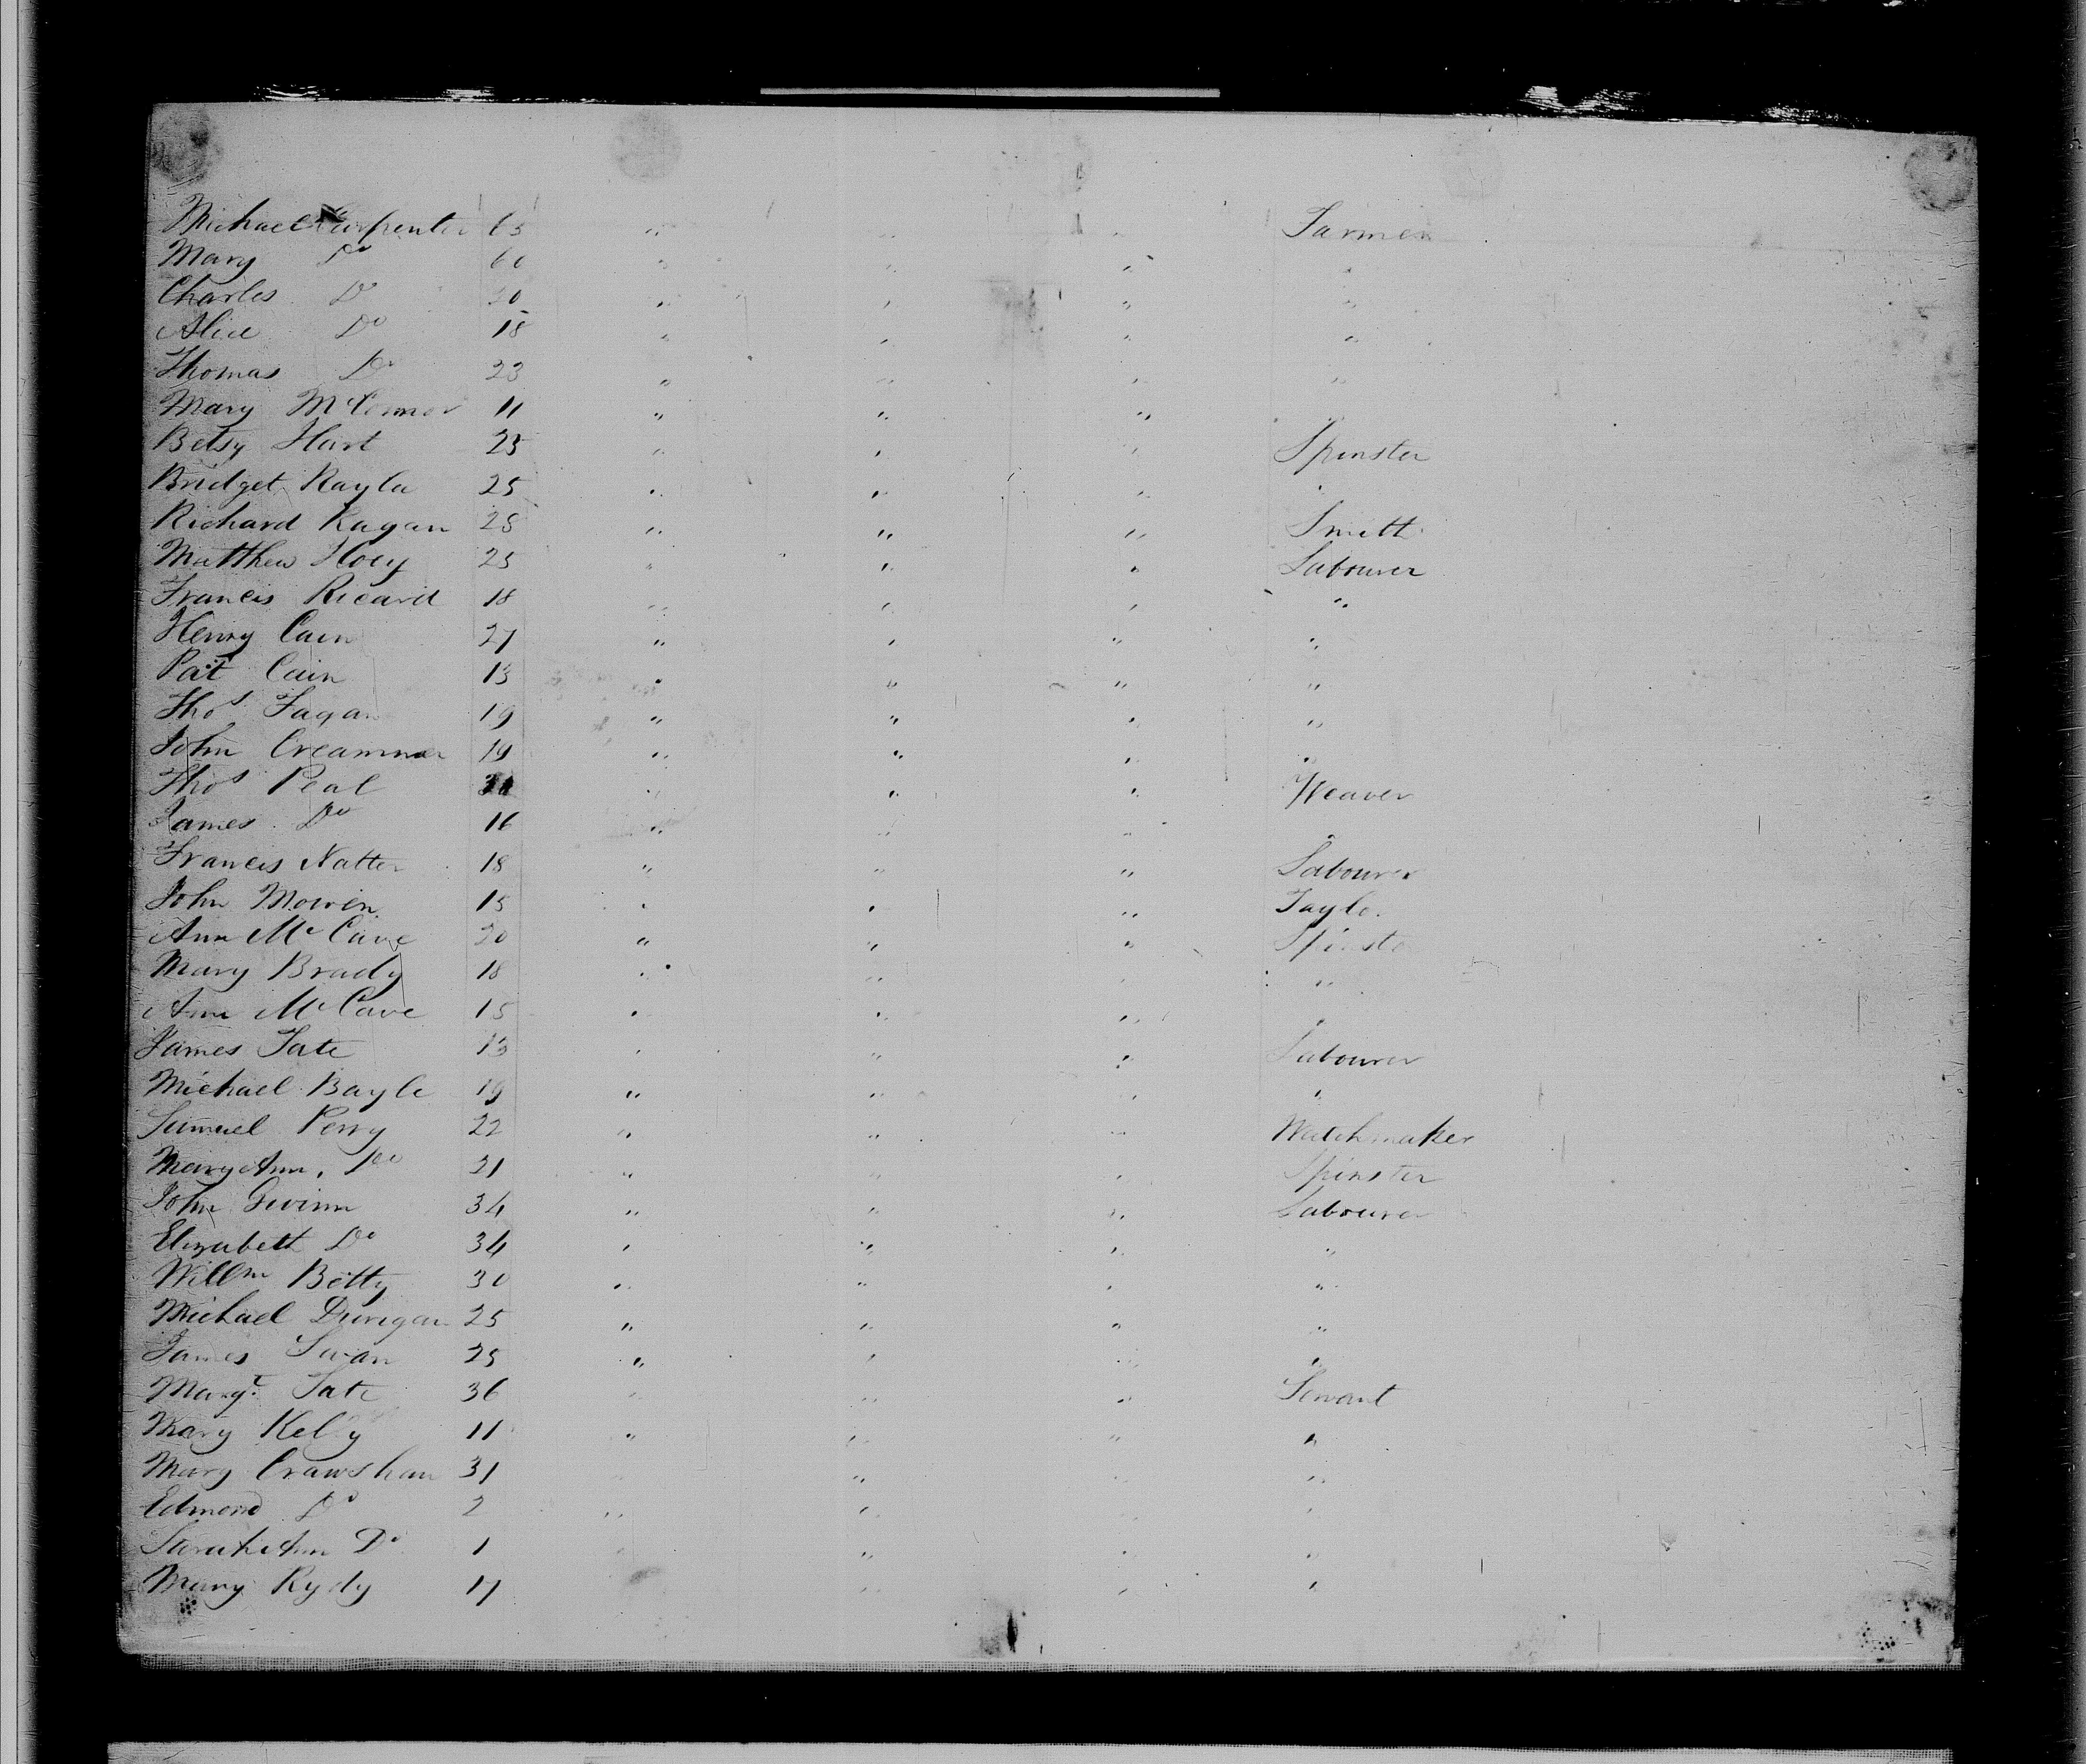 Michael Carpenter 65 " " " Farmer
Mary Do 60 " " " "
Charles Do 20 " " " "
Alice Do 18 " " " "
Thomas Do 23 " " " "
Mary McConnor 11 " " "
Betsy Hart 23 " " " Spinster
Bridget Rayla 25 " " " "
Richard Ragan 28 " " " Smith
Matthew Hoey 25 " " " Labourer
Francis Ricard 18 " " " "
Henry Cain 27 " " " "
Pat Cain 13 " " " "
Thos Fagan 19 " " " "
John Creamner 19 " " " "
Thos Peal " " " Weaver
James Do 16 " " "
Francis Natter 18 " " " Labourer
John Mowen 15 " " " Taylo
Ann McCave 20 " " " Spinste
Mary Brady 18 " " " "
Ann McCave 15 " " " "
James Tate 13 " " " Labourer
Michael Bayle 19 " " " "
Samuel Perry 22 " " " Watchmaker
Mary Ann, Do 21 " " " Spinster
John Gwinn 34 " " " Labourer
Elizabeth Do 34 " " " "
Willm Betty 30 " " " "
Michael Dunigan 25 " " " "
James Swan 25 " " " "
Margt Tate 36 " " " Servant
Mary Kelly 11 " " " "
Mary Crawshaw 31 " " " "
Edmond Do 2 " " " "
Sarah Ann Do 1 " " " "
Mary Rydy 17 " " "